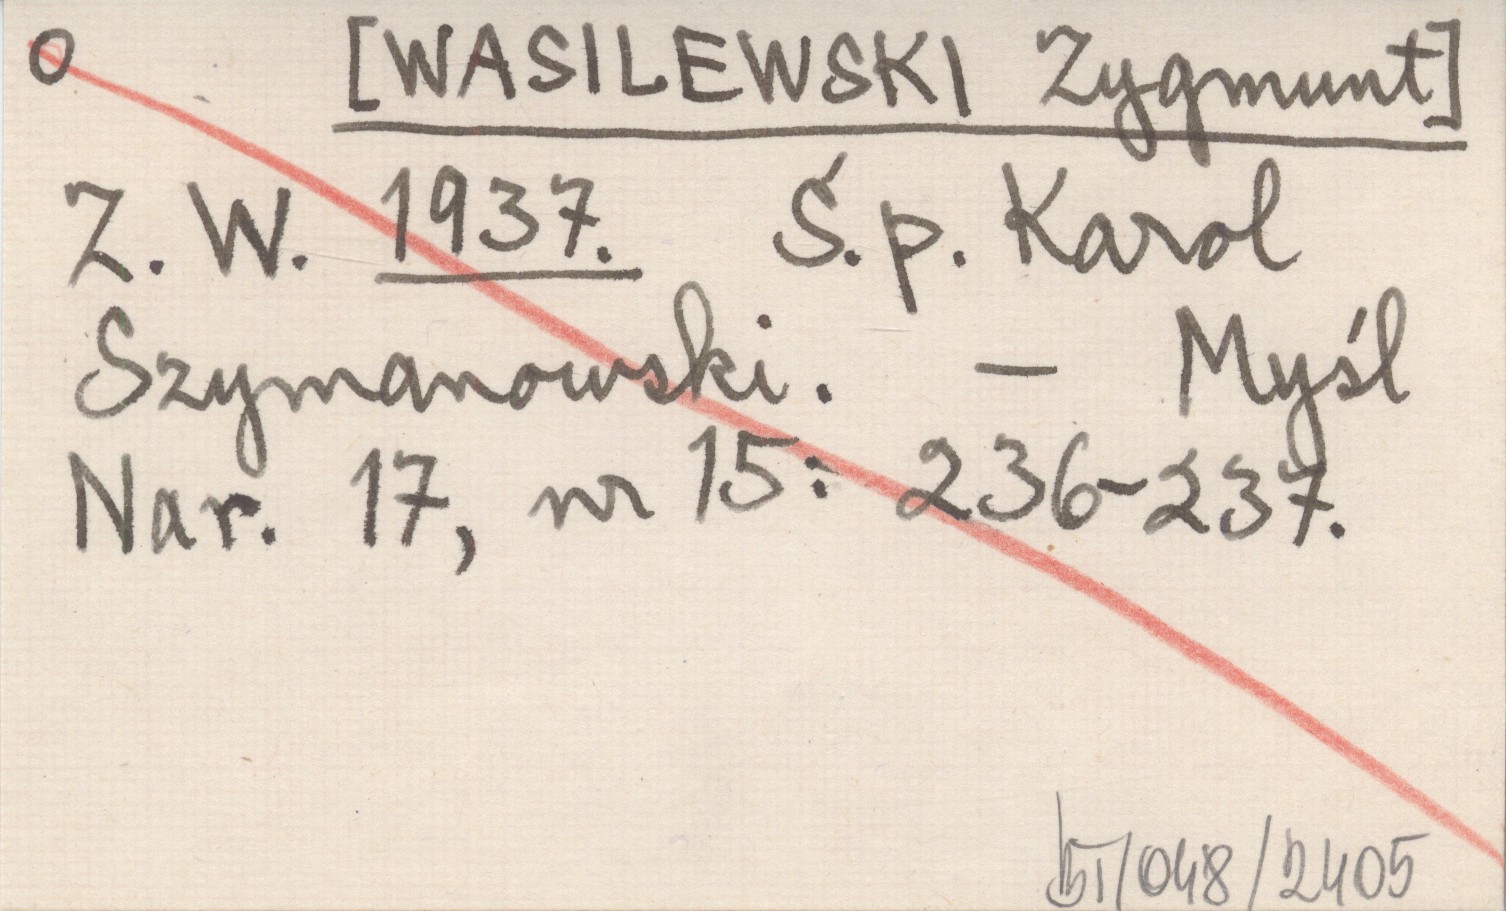 O [WASILEWSKI Zygmunt]
Z. W. 1937. Ś.p. Karol
Szymanowski. – Myśl
Nar. 17, nr 15: 236-237.
/048/2405